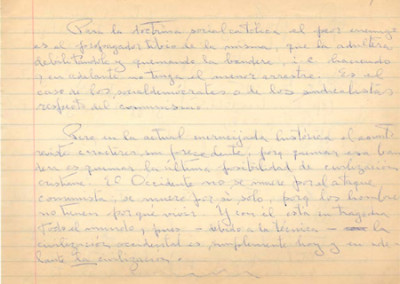 Para la doctrina social católica el peor enemigo
es el propagador tibio de la misma, que la adultera
debilitándola y quemando la bandera, i.e. haciendo
que en adelante no tenga el menor arrastre. Es el
caso de los socialdemócratas o de los sindicalistas
respecto del comunismo.
Pero en la actual encrucijada histórica el asunto
reviste caracteres sin precedente, porq quemar esa ban
dera es quemar la última posibilidad de civilización
cristiana. El Occidente no se muere por el ataque
comunista, se muere por sí solo, porq los hombres
no tienen por que vivir. Y con él está en tragedia
todo el mundo, pues - debido a la técnica - la
civilización occidental es, simplemente hoy y en ade
lante la civilización.